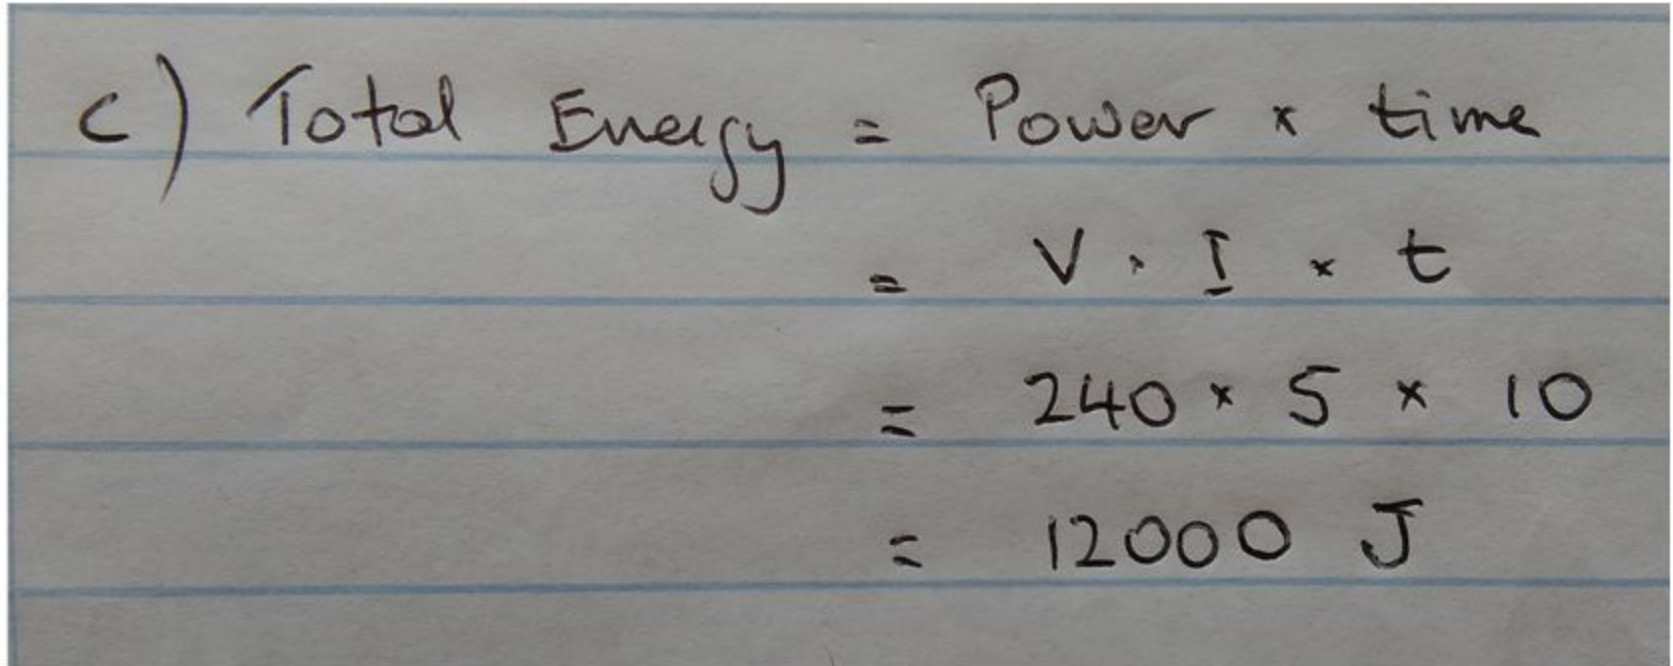 c) Total Energy = Power × time
= V × I × t
= 240 × 5 × 10
= 12000 J